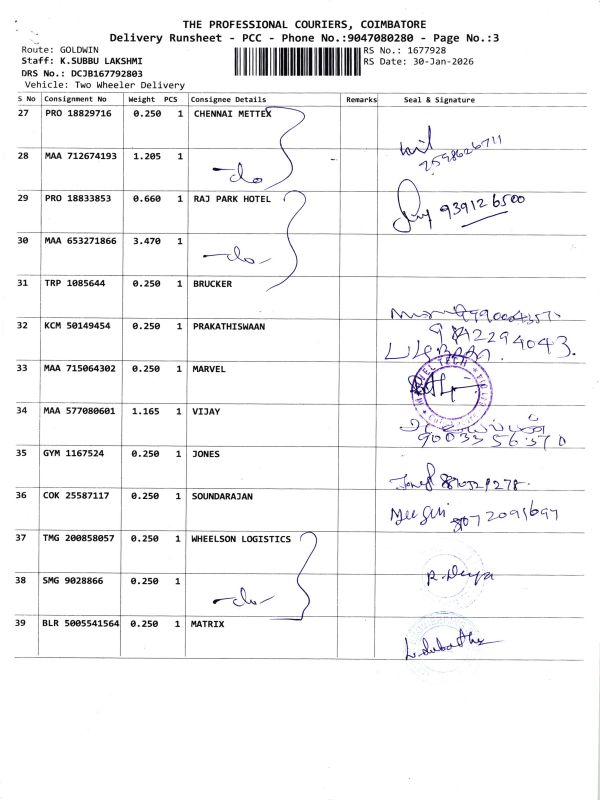 THE PROFESSIONAL COURIERS, COIMBATORE
Delivery Runsheet - PCC - Phone No.:9047080280 - Page No.:3
Route: GOLDWIN
RS No.: 1677928
Staff: K.SUBBU LAKSHMI
RS Date: 30-Jan-2026
DRS No.: DCJB167792803
Vehicle: Two Wheeler Delivery
S No Consignment No Weight PCS Consignee Details Remarks Seal & Signature
27 PRO 18829716 0.250 1 CHENNAI METTEX
28 MAA 712674193 1.205 1 -do-
29 PRO 18833853 0.660 1 RAJ PARK HOTEL 939126500
30 MAA 653271866 3.470 1 -do-
31 TRP 1085644 0.250 1 BRUCKER
32 KCM 50149454 0.250 1 PRAKATHISWAAN 9842294043.
33 MAA 715064302 0.250 1 MARVEL
34 MAA 577080601 1.165 1 VIJAY
35 GYM 1167524 0.250 1 JONES
36 COK 25587117 0.250 1 SOUNDARAJAN
37 TMG 200858057 0.250 1 WHEELSON LOGISTICS
38 SMG 9028866 0.250 1 -do- R. Divya
39 BLR 5005541564 0.250 1 MATRIX